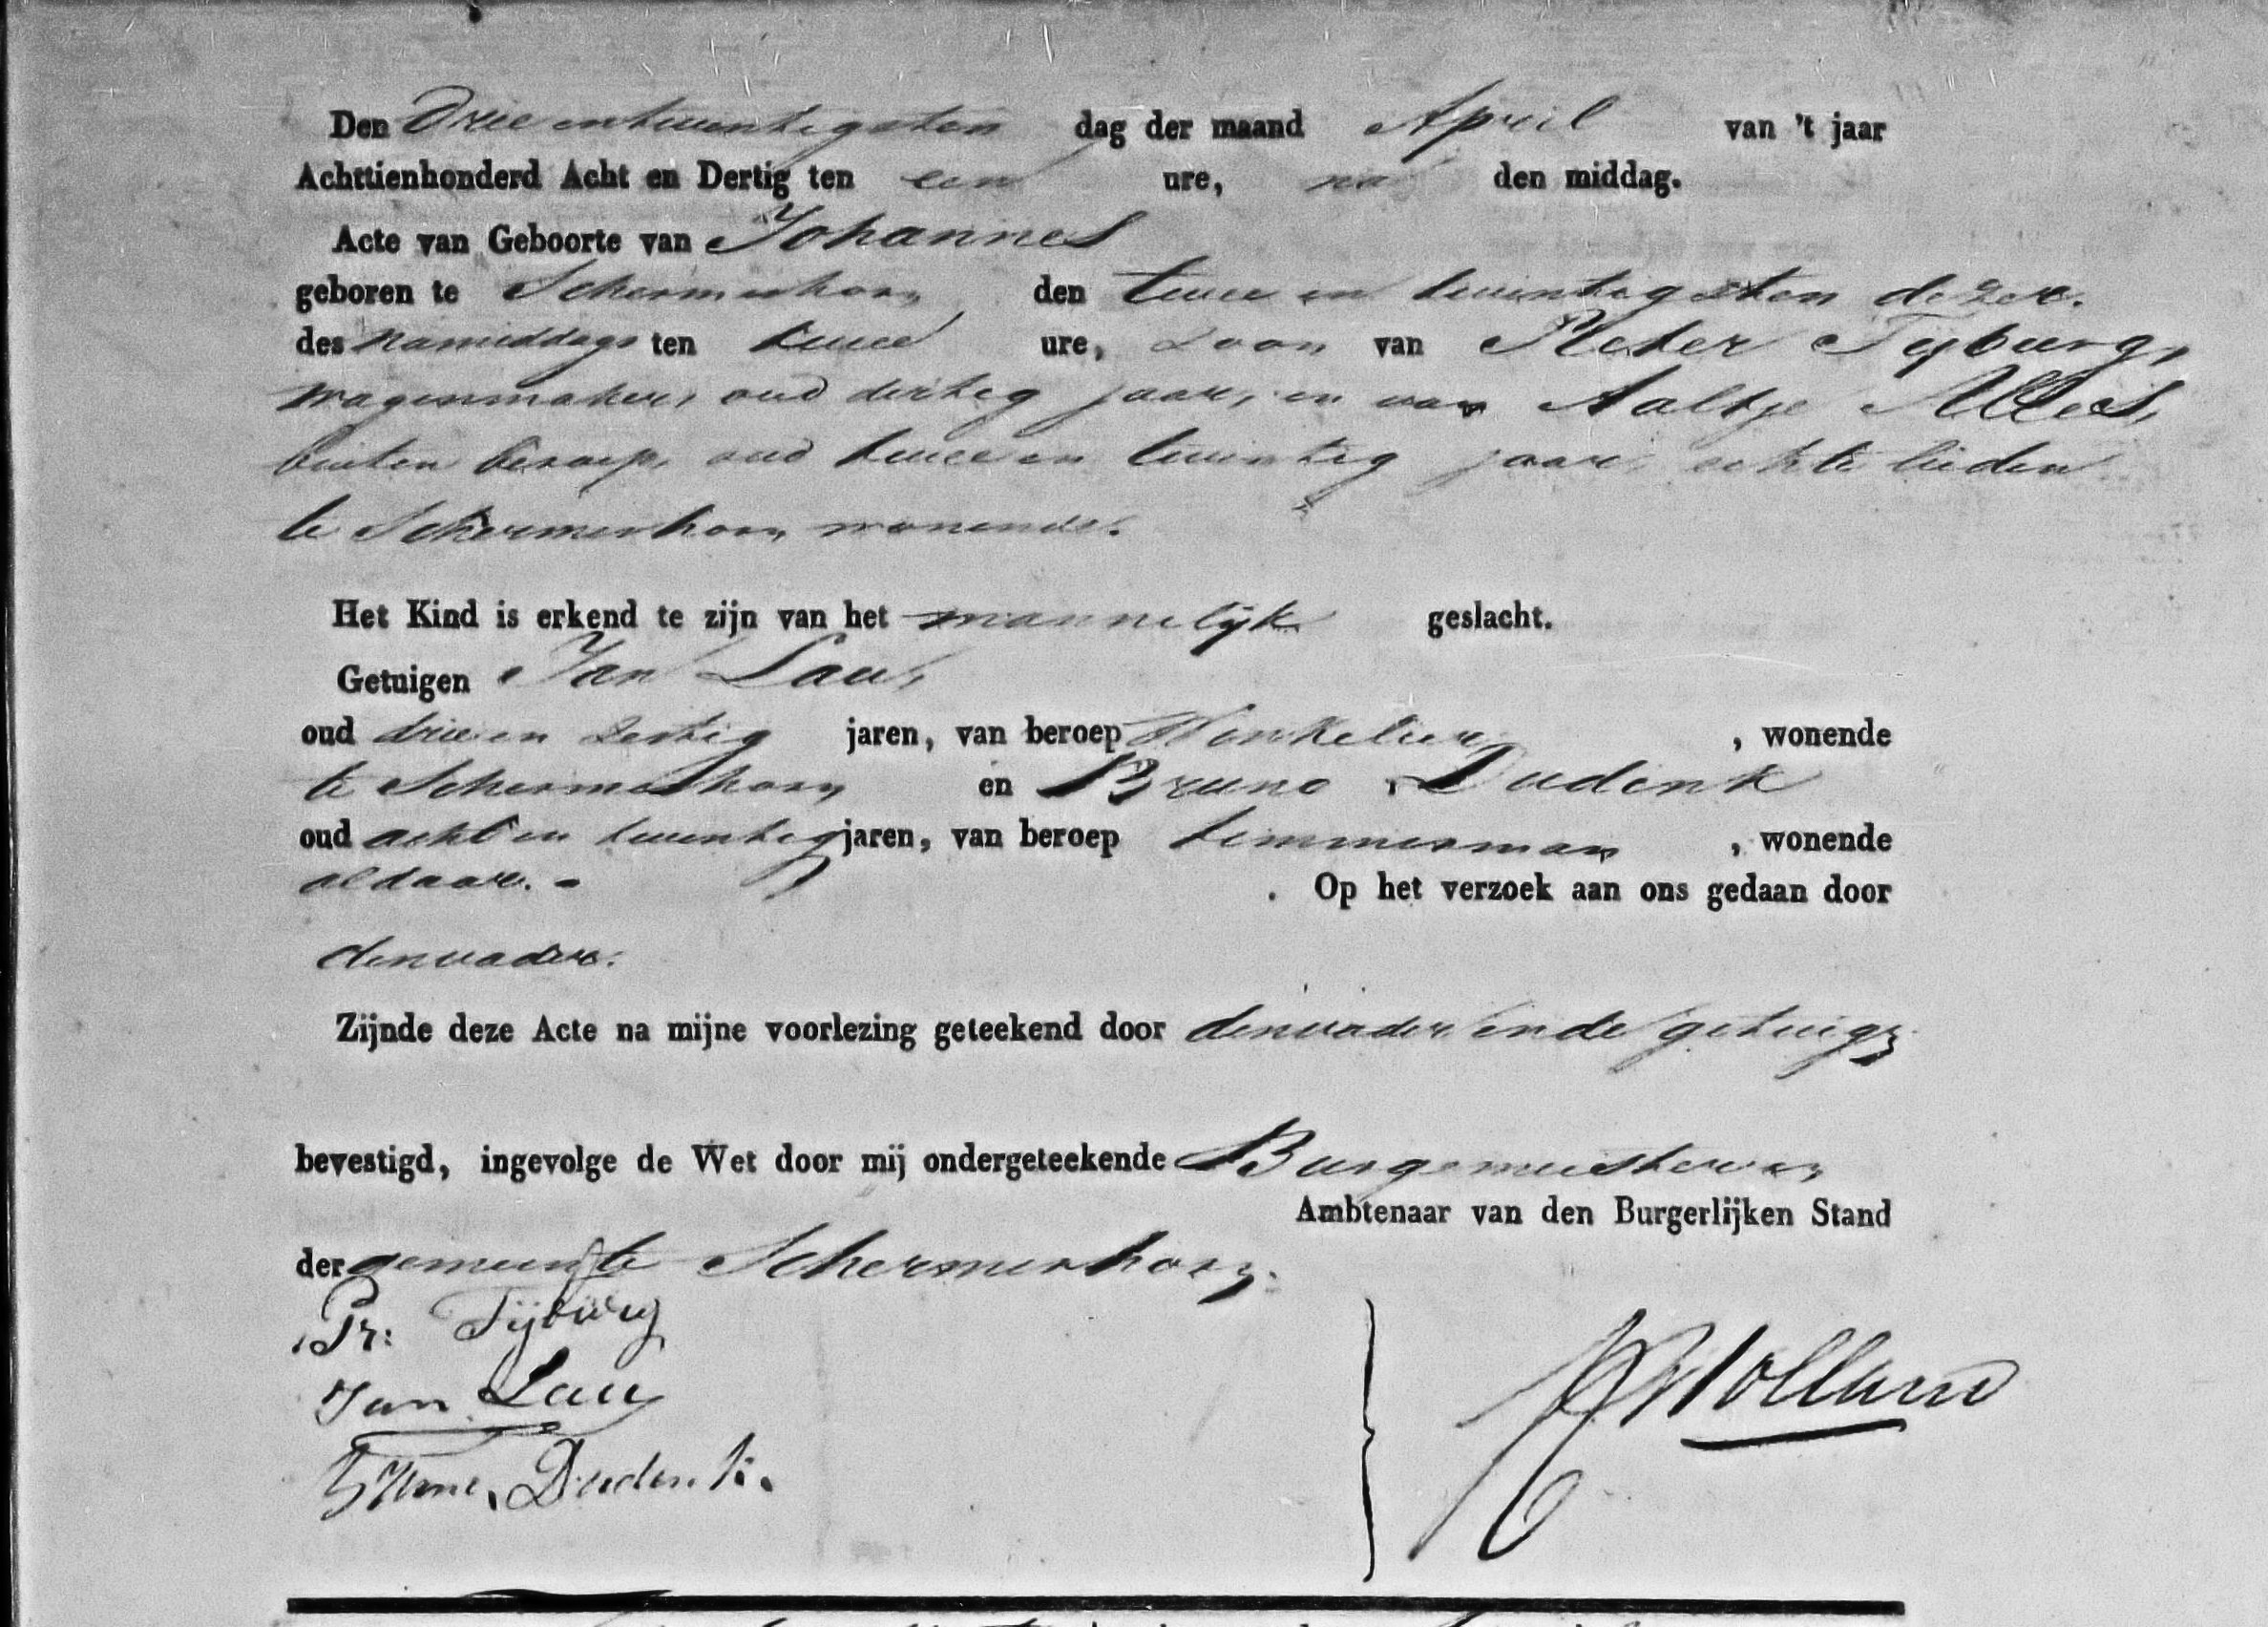 Den drie en twintigsten dag der maand April van 't jaar
Achttienhonderd Acht en Dertig ten een ure, na den middag.
Acte van Geboorte van Johannes
geboren te Schermerhorn den twee en twintigsten dezer.
des namiddags ten twee ure, zoon van Pieter Tijburg,
wagenmaker, oud dertig jaar, en van Aaltje
buiten beroep, oud twee en twintig jaar, echte lieden
te Schermerhorn wonende.
Het Kind is erkend te zijn van het mannelijk geslacht.
Getuigen Jan Lau,
oud drie en zestig jaren, van beroep Winkelier, wonende
te Schermerhorn en Bruno Dudenk
oud acht en twintig jaren, van beroep timmerman , wonende
aldaar. - . Op het verzoek aan ons gedaan door
den vader.
Zijnde deze Acte na mijne voorlezing geteekend door den vader en de getuig
bevestigd, ingevolge de Wet door mij ondergeteekende Burgemeester
Ambtenaar van den Burgerlijken Stand
der gemeente Schermerhorn.
Pr: Tijburg
Jan Lau
Dudenk.
Holland